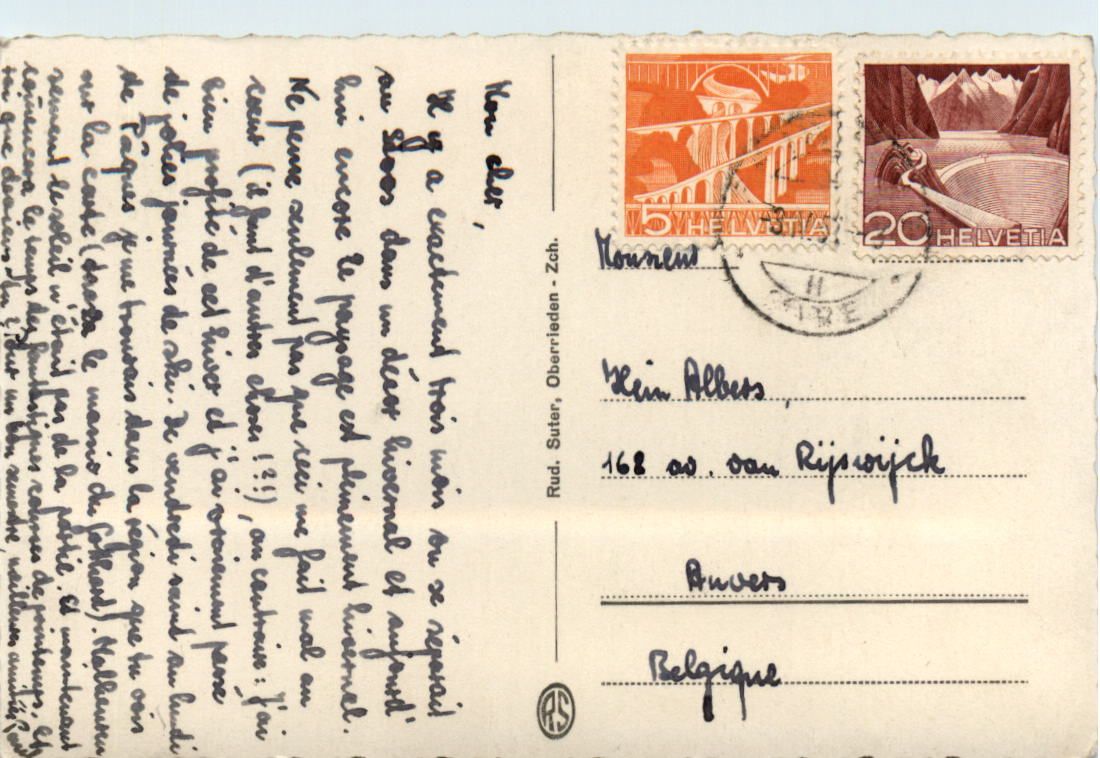 Mon cher,
Il y a exactement trois mois on se séparait
au Stoos dans un décor hivernal et aujourd'
hui encore le paysage est pleinement hivernal.
Ne pense seulement pas que ceci me fait mal au
coeur (il faut d'autres choses !?!), au contraire: j'ai
bien profité de cet hiver et j'ai vraiment passé
de jolies journées de ski. De vendredi saint au lundi
de Pâques je me trouvais dans la région que tu vois
sur la carte (dans le massif du Gotthard). Malheureu
sement le soleil n'était pas de la partie. Et maintenant
commencera le temps des fantastiques courses de printemps,
que deviens-tu? Pour un bon semestre, meilleures amitiés
Monsieur
Hein Albers,
168 av. van Rijswijck
Anvers
Belgique
Rud. Suter, Oberrieden - Zch.
RS
5 HELVETIA
20 HELVETIA